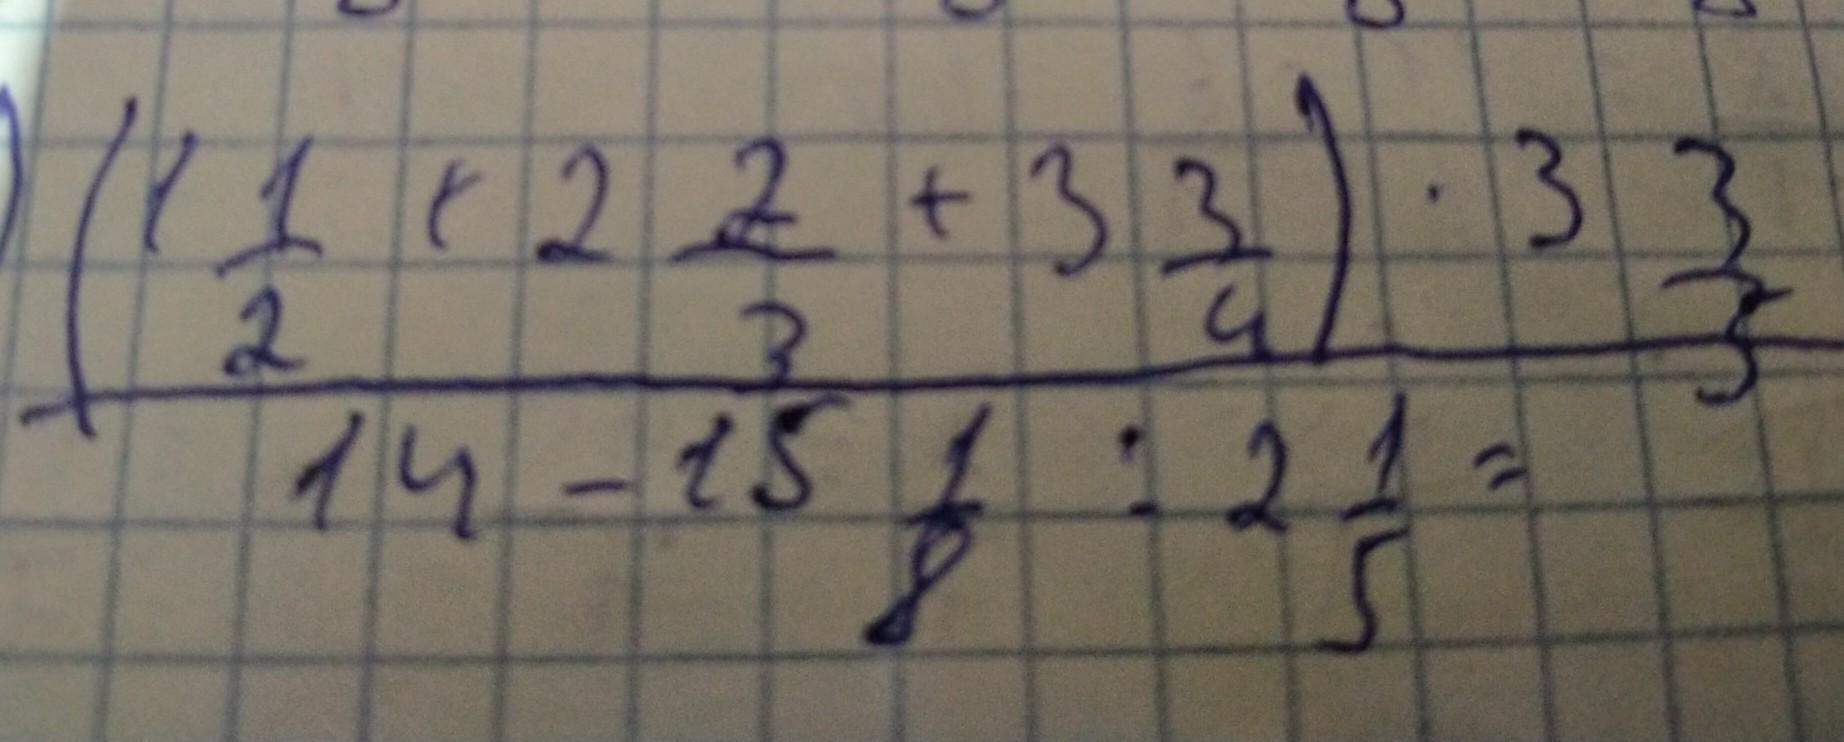 (1 1/2 + 2 2/3 + 3 3/4) · 3 3/5
14 - 15 1/8 : 2 1/5 =